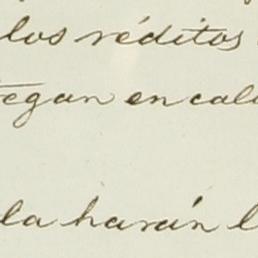 los réditos
tegan en cal
la harán l